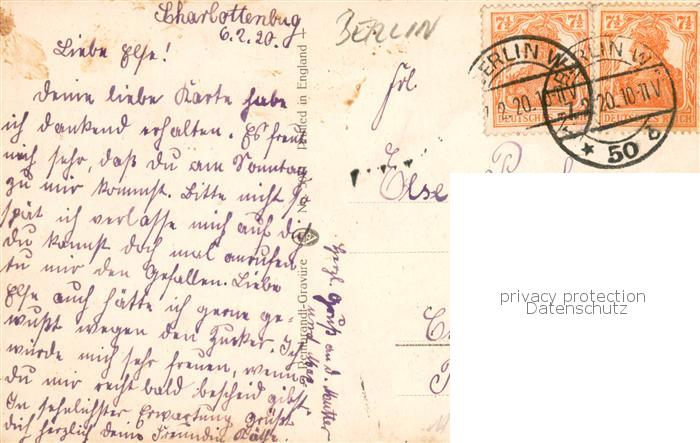 Charlottenbug
6.2.20.
Liebe Else!
Deine liebe Karte habe
ich dankend erhalten. Es freut
mich sehr, daß du am Sonntag
zu mir kommst. Bitte nicht
spät ich verlasse mich auf dich
Du kannst doch mal anrufen
tu mir den Gefallen. Liebe
Else auch hätte ich gerne ge-
wußt wegen den Zucker. Ich
würde mich sehr freuen, wenn
du mir recht bald bescheid gibst
In sehnlichster Erwartung grüßt
dich herzlich deine Freundin Käthe.
Herzl. Gruß an d. Mutter
und
Rembrandt-Gravüre
No.
Printed in England
BERLIN
Frl.
Else
7½ 7½
7½ 7½
DEUTSCHES REICH
DEUTSCHES REICH
BERLIN W
BERLIN W
2.20.10-11V
7.2.20.10-11V
* 50
privacy protection
Datenschutz